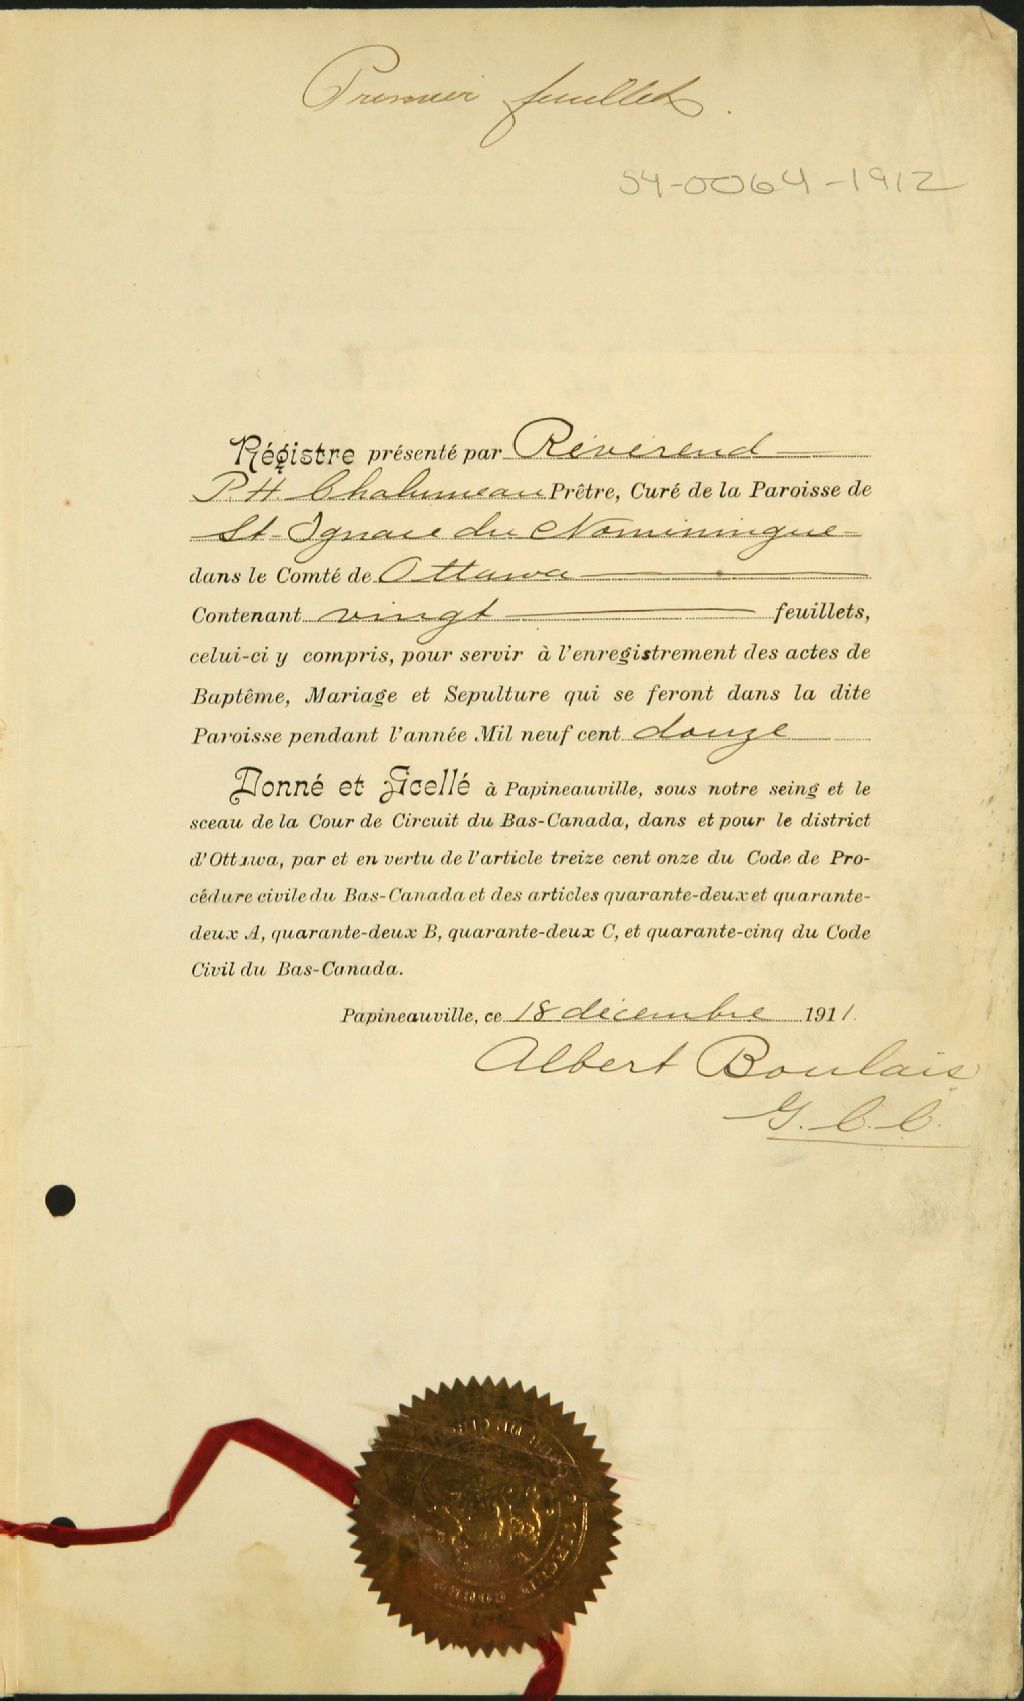 Premier feuillet.
54-0064-1912
Régistre présenté par Révérend
P. H. Chalumeau Prêtre, Curé de la Paroisse de
St-Ignace du Nominingue
dans le Comté de Ottawa
Contenant vingt feuillets,
celui-ci y compris, pour servir à l'enregistrement des actes de
Baptême, Mariage et Sepulture qui se feront dans la dite
Paroisse pendant l'année Mil neuf cent douze
Donné et Scellé à Papineauville, sous notre seing et le
sceau de la Cour de Circuit du Bas-Canada, dans et pour le district
d'Ottawa, par et en vertu de l'article treize cent onze du Code de Pro-
cédure civile du Bas-Canada et des articles quarante-deux et quarante-
deux A, quarante-deux B, quarante-deux C, et quarante-cinq du Code
Civil du Bas-Canada.
Papineauville, ce 18 décembre 1911.
Albert Boulais
G. C. C.